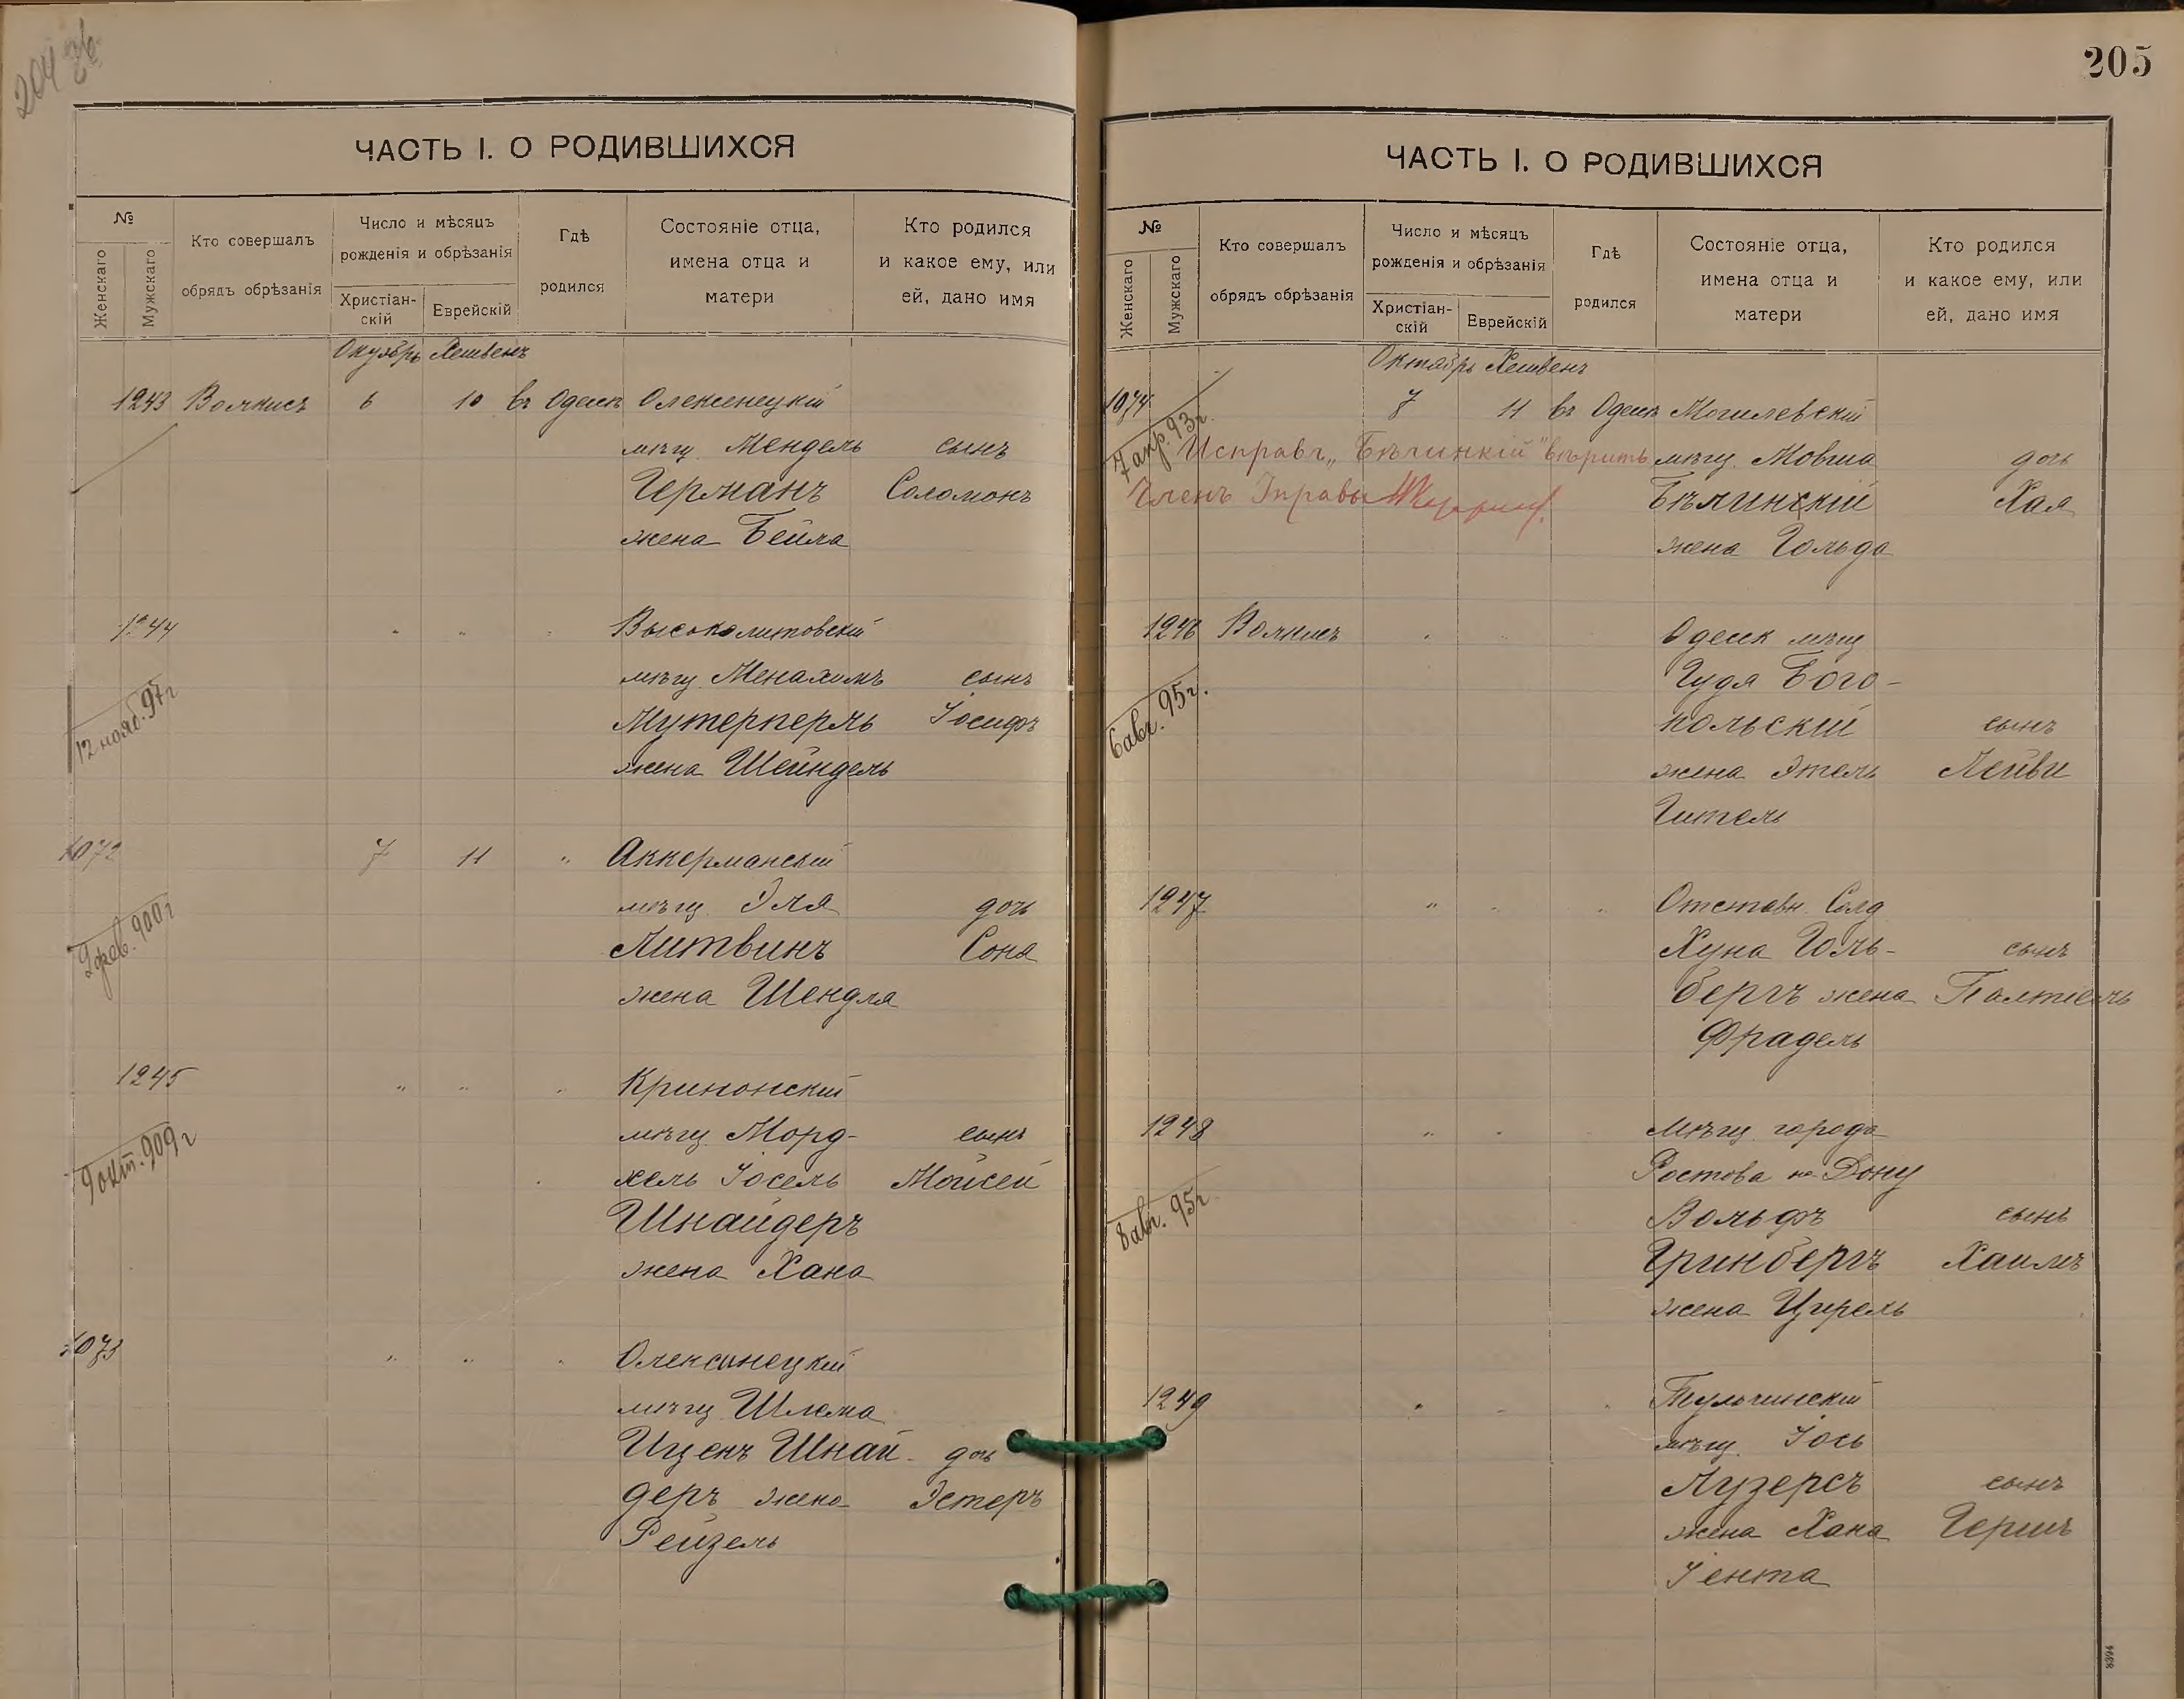 204 об
ЧАСТЬ I. О РОДИВШИХСЯ
№
Женскаго
Мужскаго
Кто совершалъ
обрядъ обрѣзанія
Число и мѣсяцъ
рожденія и обрѣзанія
Христіан-
скій
Еврейскій
Гдѣ
родился
Состояніе отца,
имена отца и
матери
Кто родился
и какое ему, или
ей, дано имя
Октябрь Хешвенъ
1243 Волкисъ 6 10 въ Одессѣ Олексенецкій
мѣщ. Мендель сынъ
Германъ Соломонъ
жена Бейла
1244 " " " Высоколитовскій
мѣщ. Менахимъ сынъ
12 нояб. 97 г
Мутерперль Іосифъ
жена Шейндель
1072 7 11 " Аккерманскій
мѣщ. Эля дочь
9 фев. 900 г
Литвинъ Соня
жена Шендля
1245 " " " Кринонскій
мѣщ. Морд- сынъ
9 окт. 909 г
хель Іосель Мойсей
Шнайдеръ
жена Хана
1073 " " " Олексинецкій
мѣщ. Шлема
Иценъ Шнай- дочь
деръ жена Эстеръ
Рейзель
205
ЧАСТЬ I. О РОДИВШИХСЯ
№
Женскаго
Мужскаго
Кто совершалъ
обрядъ обрѣзанія
Число и мѣсяцъ
рожденія и обрѣзанія
Христіан-
скій
Еврейскій
Гдѣ
родился
Состояніе отца,
имена отца и
матери
Кто родился
и какое ему, или
ей, дано имя
Октябрь Хешвенъ
1074 7 11 въ Одессѣ Могилевскій
7 апр. 93 г.
Исправ. „Бѣлинкій" вѣрить мѣщ. Мовша дочь
Членъ Управы Бѣлинкій Хая
жена Гольда
1246 Волкисъ " " Одесск мѣщ
Іуда Бого-
6 авг. 95 г.
польскій сынъ
жена Этель Лейви
Гитель
1247 " " " Отставн. Солд
Хуна Голь- сынъ
бергъ жена Палтіель
Фрадель
1248 " " Мѣщ. города
Ростова на Дону
8 авг. 95 г
Вольфъ сынъ
Гринбергъ Хаимъ
жена Цирель
1249 " " " Тульчинскій
мѣщ. Іось
Лузерсъ сынъ
жена Хана Гершъ
Іента